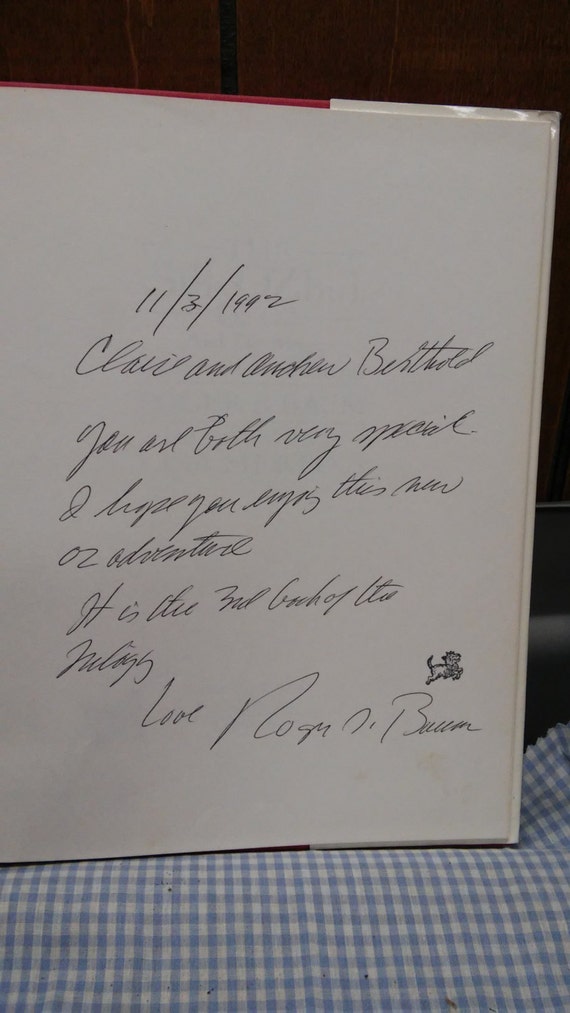 11/3/1992
Claire and Andrew Berthold
You are both very special.
I hope you enjoy this new
OZ adventure
It is the 3rd book of the
trilogy
Love Roger S. Baum